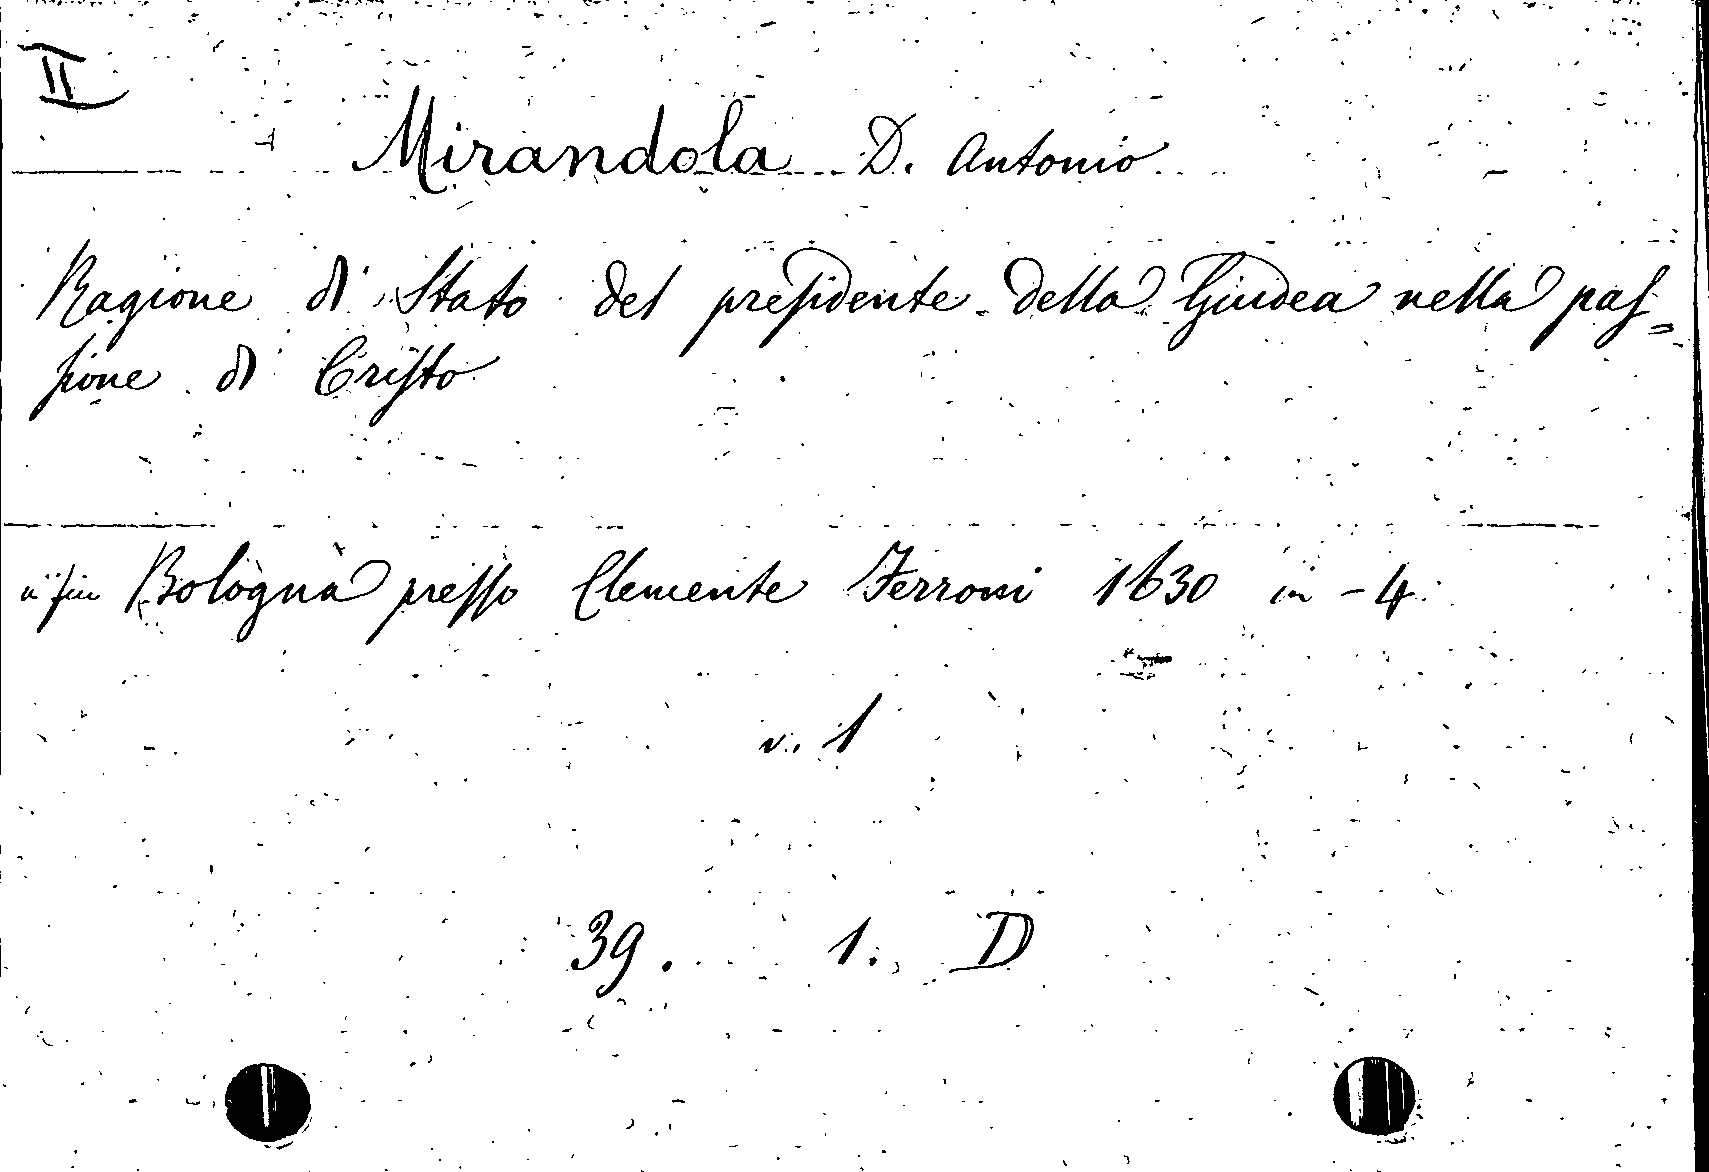 II
Mirandola D. Antonio
Ragione di Stato del preſidente della Giudea nella paſ=
ſione di Criſto
Bologna preſſo Clemente Ferroni 1630 in - 4
v. 1
39. 1. D